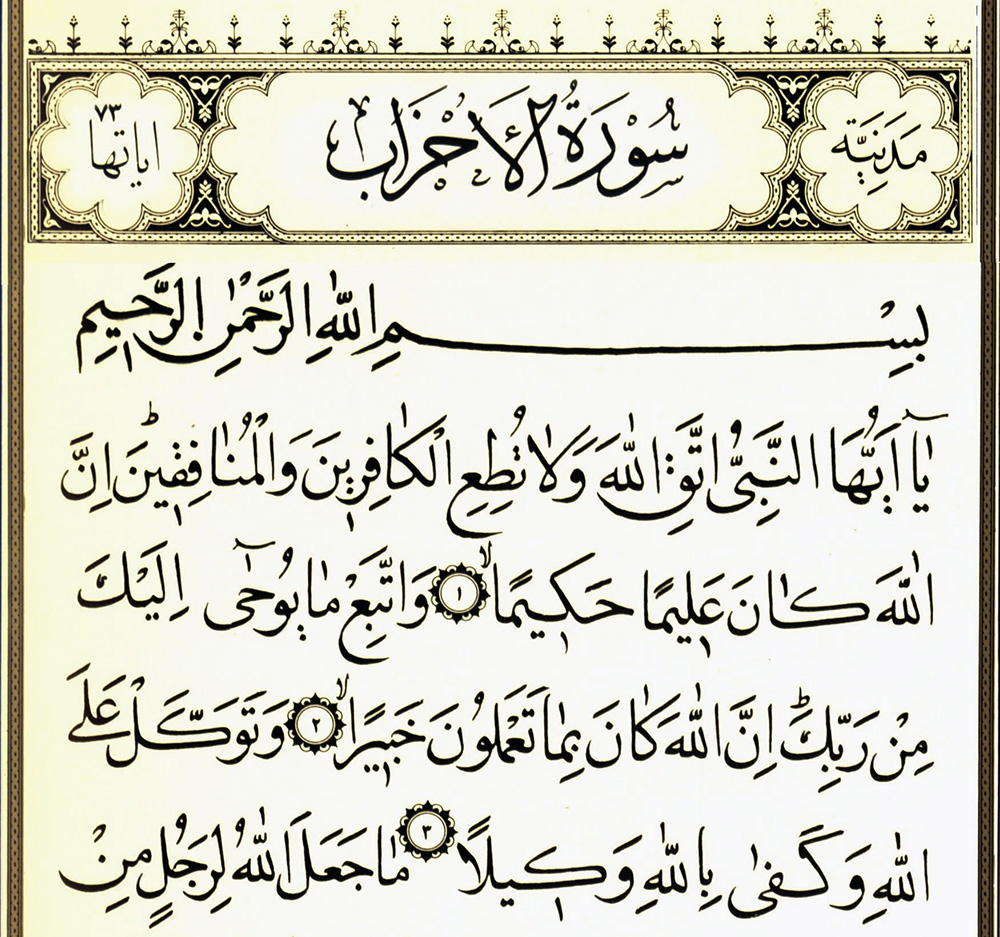 مَدَنِيَّة
سُورَةُ الْأَحْزَابِ
اياتها ٧٣
بِسْمِ اللّٰهِ الرَّحْمٰنِ الرَّحِيمِ
يَٓا اَيُّهَا النَّبِىُّ اتَّقِ اللّٰهَ وَلَا تُطِعِ الْكَافِرِينَ وَالْمُنَافِقِينَۜ اِنَّ
اللّٰهَ كَانَ عَلِيمًا حَكِيمًاۙ ١ وَاتَّبِعْ مَا يُوحٰٓى اِلَيْكَ
مِنْ رَبِّكَۜ اِنَّ اللّٰهَ كَانَ بِمَا تَعْمَلُونَ خَبِيرًاۙ ٢ وَتَوَكَّلْ عَلَى
اللّٰهِ وَكَفٰى بِاللّٰهِ وَكِيلًا ٣ مَا جَعَلَ اللّٰهُ لِرَجُلٍ مِنْ